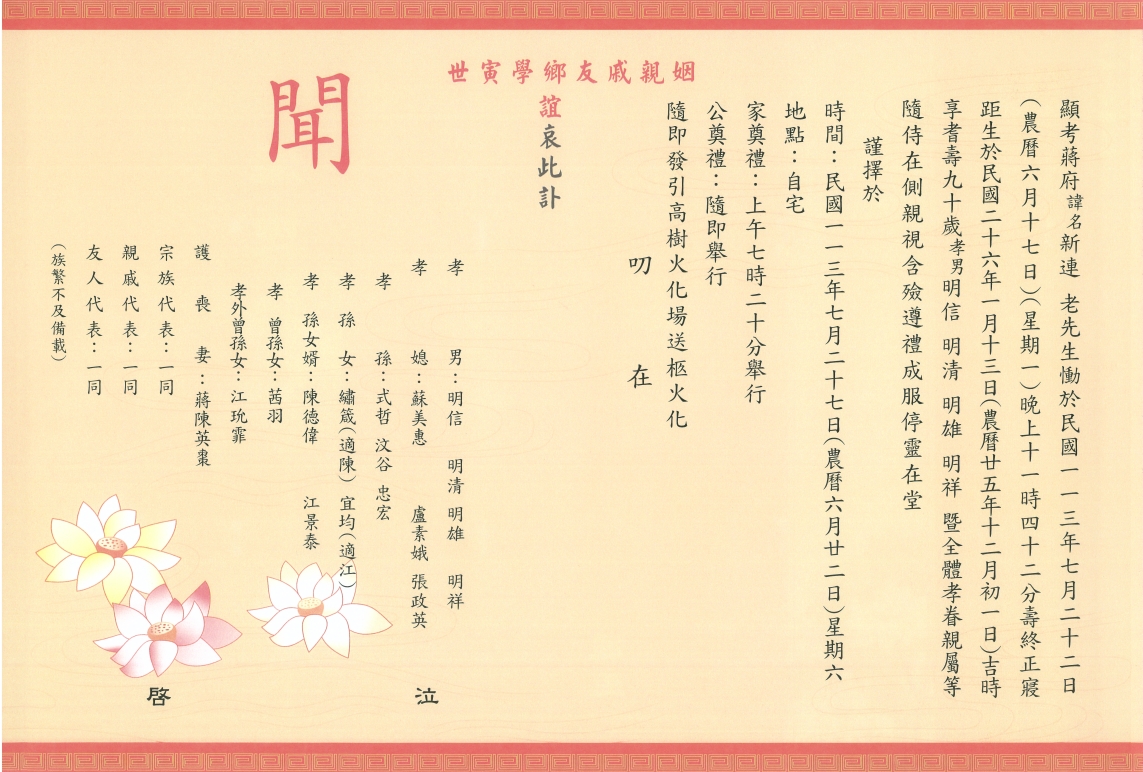 顯考蔣府諱名新連 老先生慟於民國一一三年七月二十二日
(農曆六月十七日)(星期一)晚上十一時四十二分壽終正寢
距生於民國二十六年一月十三日(農曆廿五年十二月初一日)吉時
享耆壽九十歲孝男明信 明清 明雄 明祥 暨全體孝眷親屬等
隨侍在側親視含殮遵禮成服停靈在堂
謹擇於
時間：民國一一三年七月二十七日(農曆六月廿二日)星期六
地點：自宅
家奠禮：上午七時二十分舉行
公奠禮：隨即舉行
隨即發引高樹火化場送柩火化
叨 在
世寅學鄉友戚親姻
誼哀此訃
聞
孝 男：明信 明清 明雄 明祥
孝 媳：蘇美惠 盧素娥 張政英
孝 孫：式哲 汶谷 忠宏
孝 孫 女：繡箴(適陳) 宜均(適江)
孝 孫女婿：陳德偉 江景泰
孝 曾孫女：茜羽
孝外曾孫女：江玧霏
護 喪 妻：蔣陳英棗
宗族代表：一同
親戚代表：一同
友人代表：一同
(族繁不及備載)
泣 啓